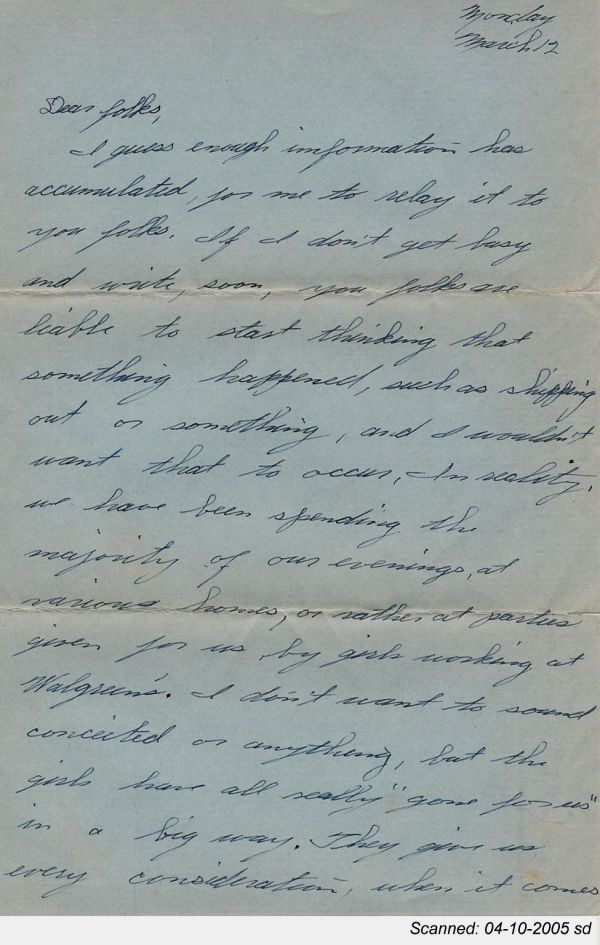 Monday
March 12
Dear folks,
I guess enough information has
accumulated, for me to relay it to
you folks. If I don't get busy
and write, soon, you folks are
liable to start thinking that
something happened, such as shipping
out or something, and I wouldn't
want that to occur. In reality,
we have been spending the
majority of our evenings, at
various homes, or rather at parties
given for us, by girls working at
Walgreen's. I don't want to sound
conceited or anything, but the
girls have all really "gone for us"
in a big way. They give us
every consideration, when it comes
Scanned: 04-10-2005 sd